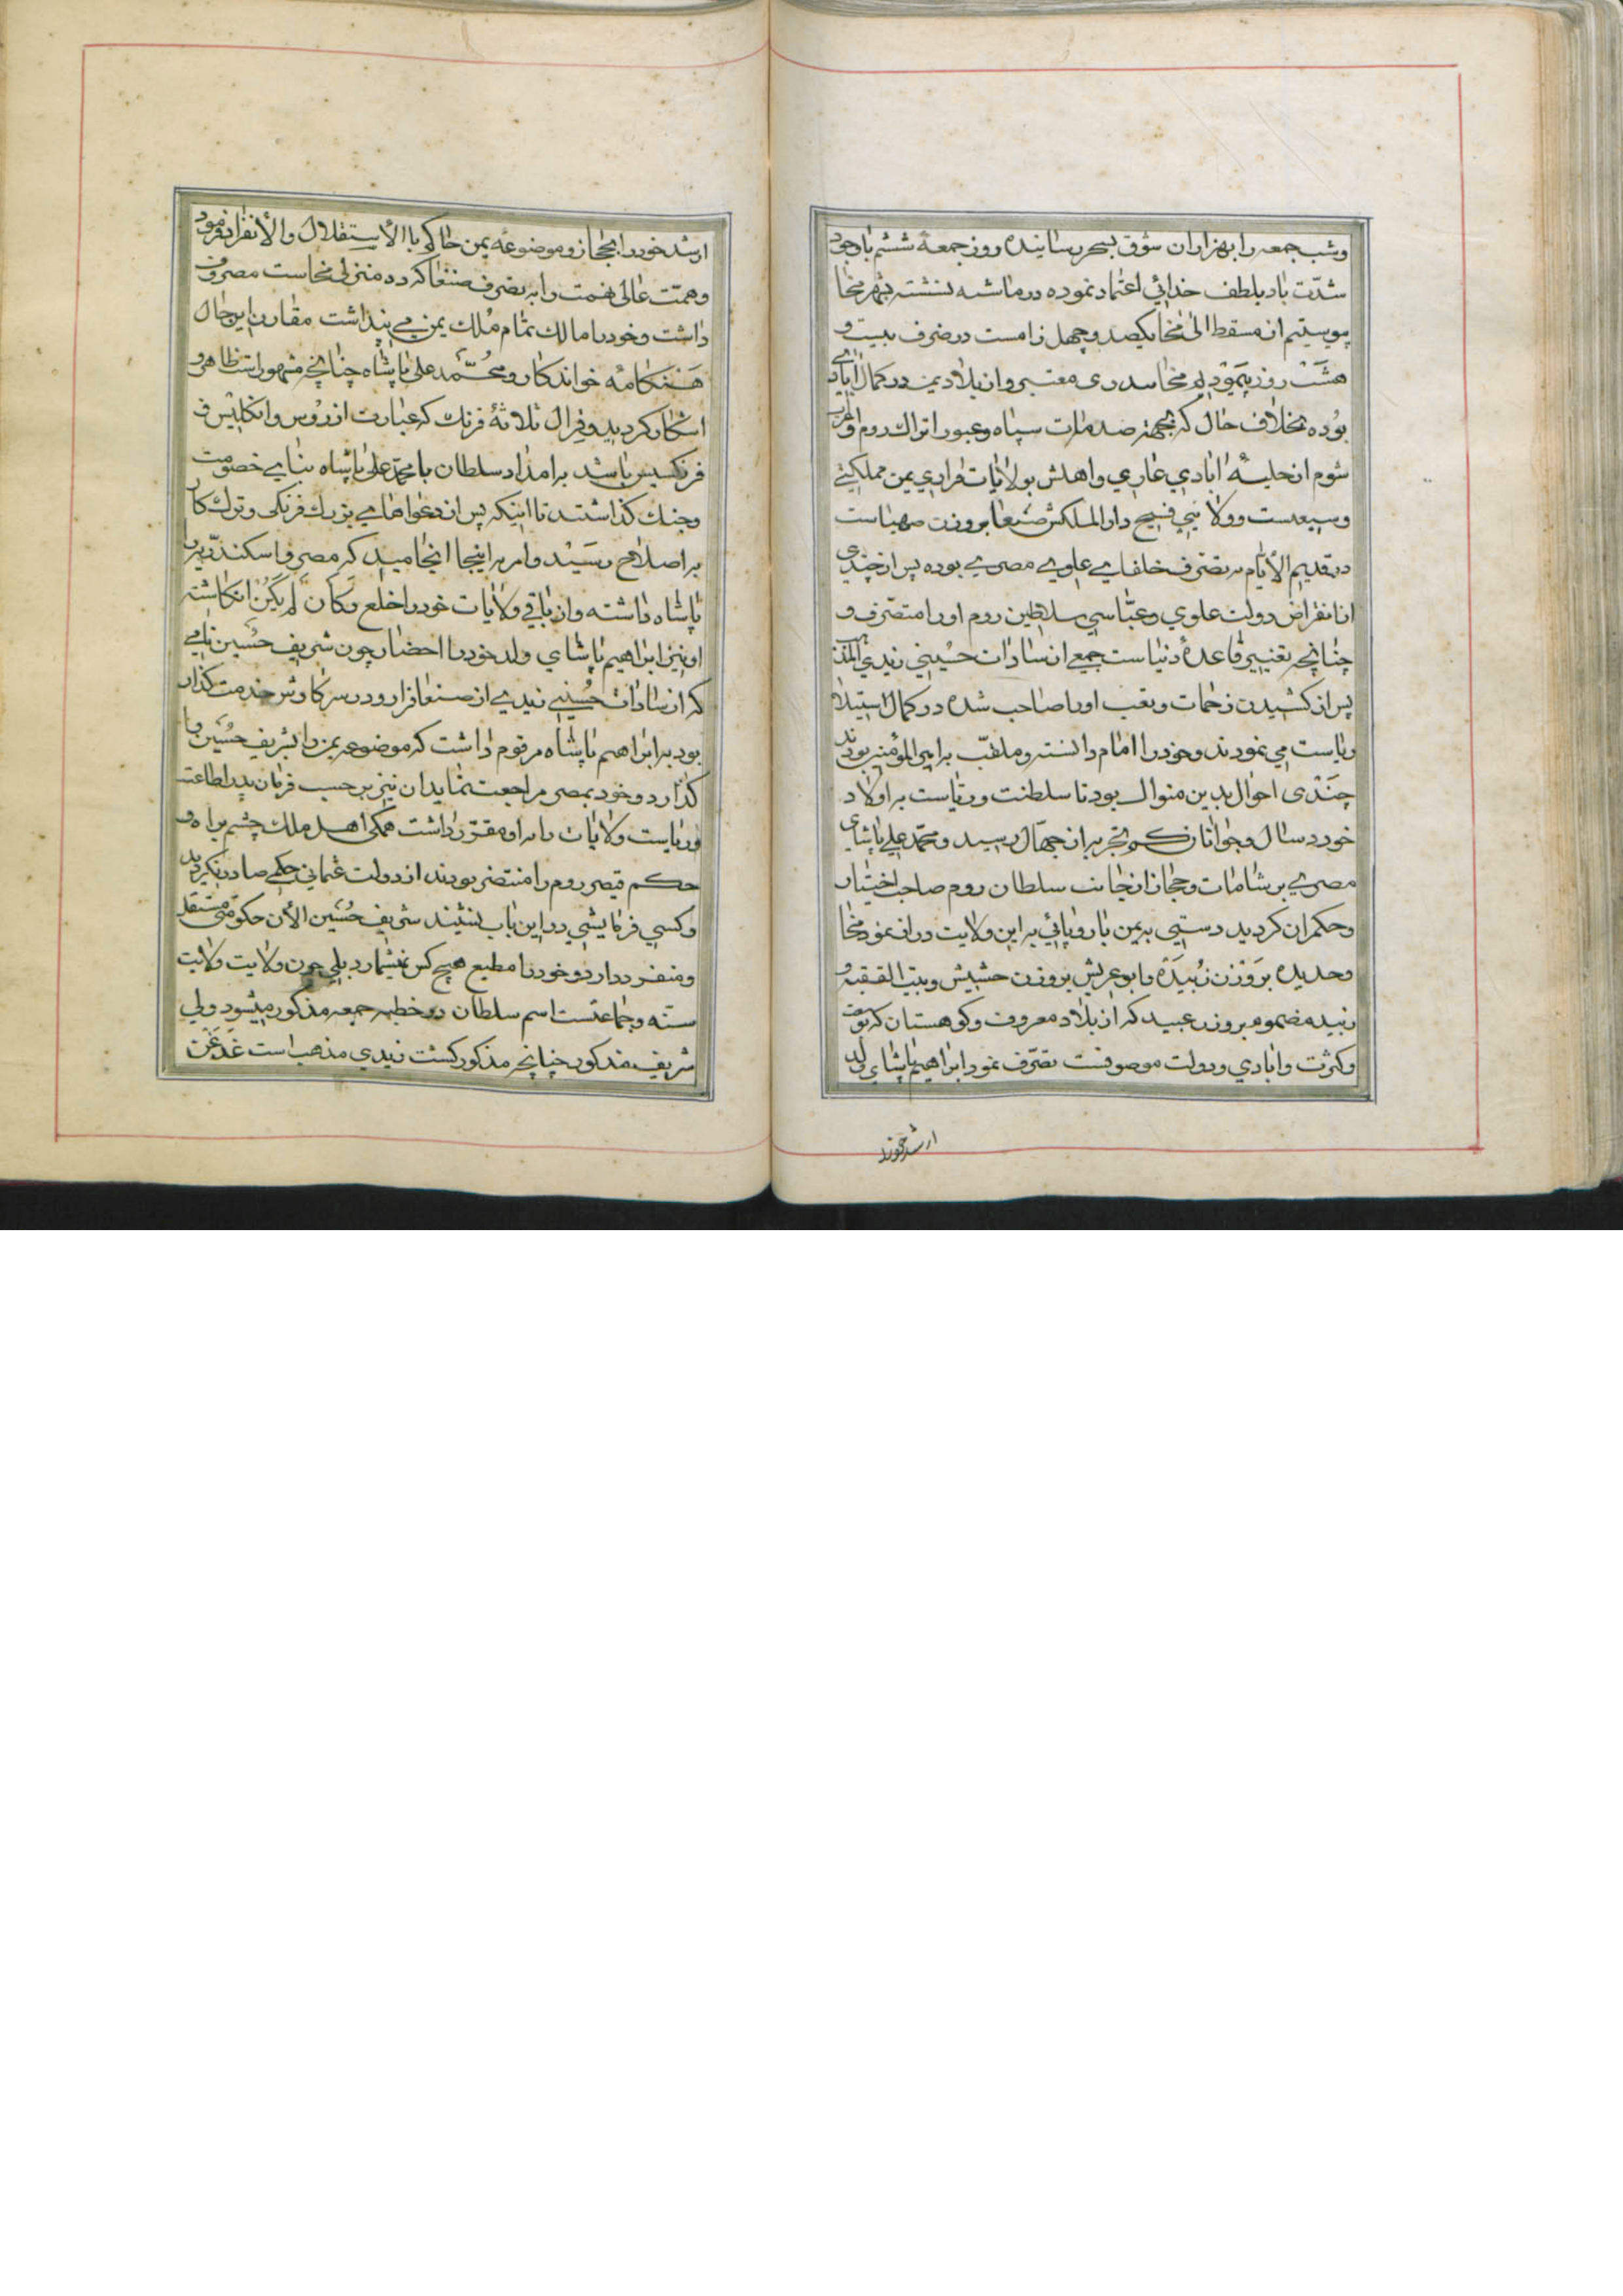 وشب جمعه را بهزاران شوق بسحر رسانیده روز جمعهٔ ششم باوجود
شدّت باد بلطف خدائي اعتماد نموده درماشه نشسته بشهر مخا
پیوستیم از مسقط الی مخا یکصد و چهل زامست در ظرف بیست و
هشت روز پیمودیم مخا بندری معتبر و از بلاد یمن در کمال ابادي
بوده بخلاف حال که بجهة صدمات سپاه و عبور اتراك روم و عرب
شوم از حلیهٔ ابادي عاري و اهلش بولایات فراري یمن مملکتي
وسیعست و ولایتي فسیح دارالملکش صنعا بر وزن صهباست
در قدیم الأیّام بتصرّف خلفاي علوي مصري بوده پس از چندي
از انقراض دولت علوي و عبّاسي سلاطین روم اورا متصرّف و
چنانچه تغییر قاعدهٔ دنیاست جمعي از سادات حسیني زیدي المذهب
پس از کشیدن زحمات و تعب اورا صاحب شده در کمال استیلا
ریاست مي نمودند و خودرا امام دانسته و ملقّب بامیرالمؤمنین بودند
چندی احوال بدین منوال بود تا سلطنت و ریاست بر اولاد
خورد سال و جوانان کم تجربه ان جهّال رسید و محمّد علي پاشاي
مصري بر شامات و حجاز از نجانب سلطان روم صاحب اختیار
و حکمران گردید دستي بر یمن یا روپائي به این ولایت دراز نمود مخا
و حدیده بر وزن زُبیَدَه و ابوعریش بر وزن حشیش و بیت الفقیه و
زبید مضموم بر وزن عبید که از بلاد معروف و کوهستان که بوسعت
و کثرت و ابادي و دولت موصوفست تصرّف نمود ابراهیم پاشاي ولد
ارشد خودرا
ارشد خودرا بحجاز و موضوعهٔ یمن حاکم باالأستقلال و الأنفراد فرمود
و همّت عالی نهمت را به تصرف صنعا که ده منزلی مخاست مصروف
داشت و خودرا مالك تمام مُلك یمن مي پنداشت مقارن این حال
هنگامهٔ خواندکار و محُمَّد علي پاشاه چنانچه مشهور است ظاهر و
اشکار گردید و قرال ثلاثهٔ فرنك که عبارت از رُوس و انگلیس و
فرنکسیس باشد بر امداد سلطان با محمّد علي پاشاه بناي خصومت
و جنك گذاشتند تا اینکه پس از دعواهاي بزرك فرنگی و ترك کار
بر اصلاح رسَید و امر بر اینجا انجامید که مصر و اسکندریّه را
پاشاه داشته و از باقي ولایات خودرا خلع و کَان لَم یَکُنْ انگاشته
او نیز ابراهیم پاشاي ولد خودرا احضار چون شریف حُسین نامي
که از سادات حُسیني زیدي از صنعا فرار و در سرکارش خدمت گذار
بود به ابراهیم پاشاه مرقوم داشت که موضوعه یمن را بشریف حُسَین وا
گذارد و خود بمصر مراجعت نماید ان نیز بر حسب فرمان پدر اطاعت
و ریاست ولایات را به او مقرّر داشت همگی اهل ملك چشم براه و
حکم قیصر روم را منتضر بودند از دولت عثماني حکمي صادر نگردید
و کسي فرمایشي در این باب نشنید شریف حُسَین الأن حکومتي مستقل
و منفرد دارد و خودرا مطیع هیچ کس نمیشمارد بلي چون ولایت ولایت
سنّه و جماعتست اسم سلطان در خطبه جمعه مذکور میشود ولي
شریف مذکور چنانچه مذکور گشت زیدي مذهب است غَدغَن